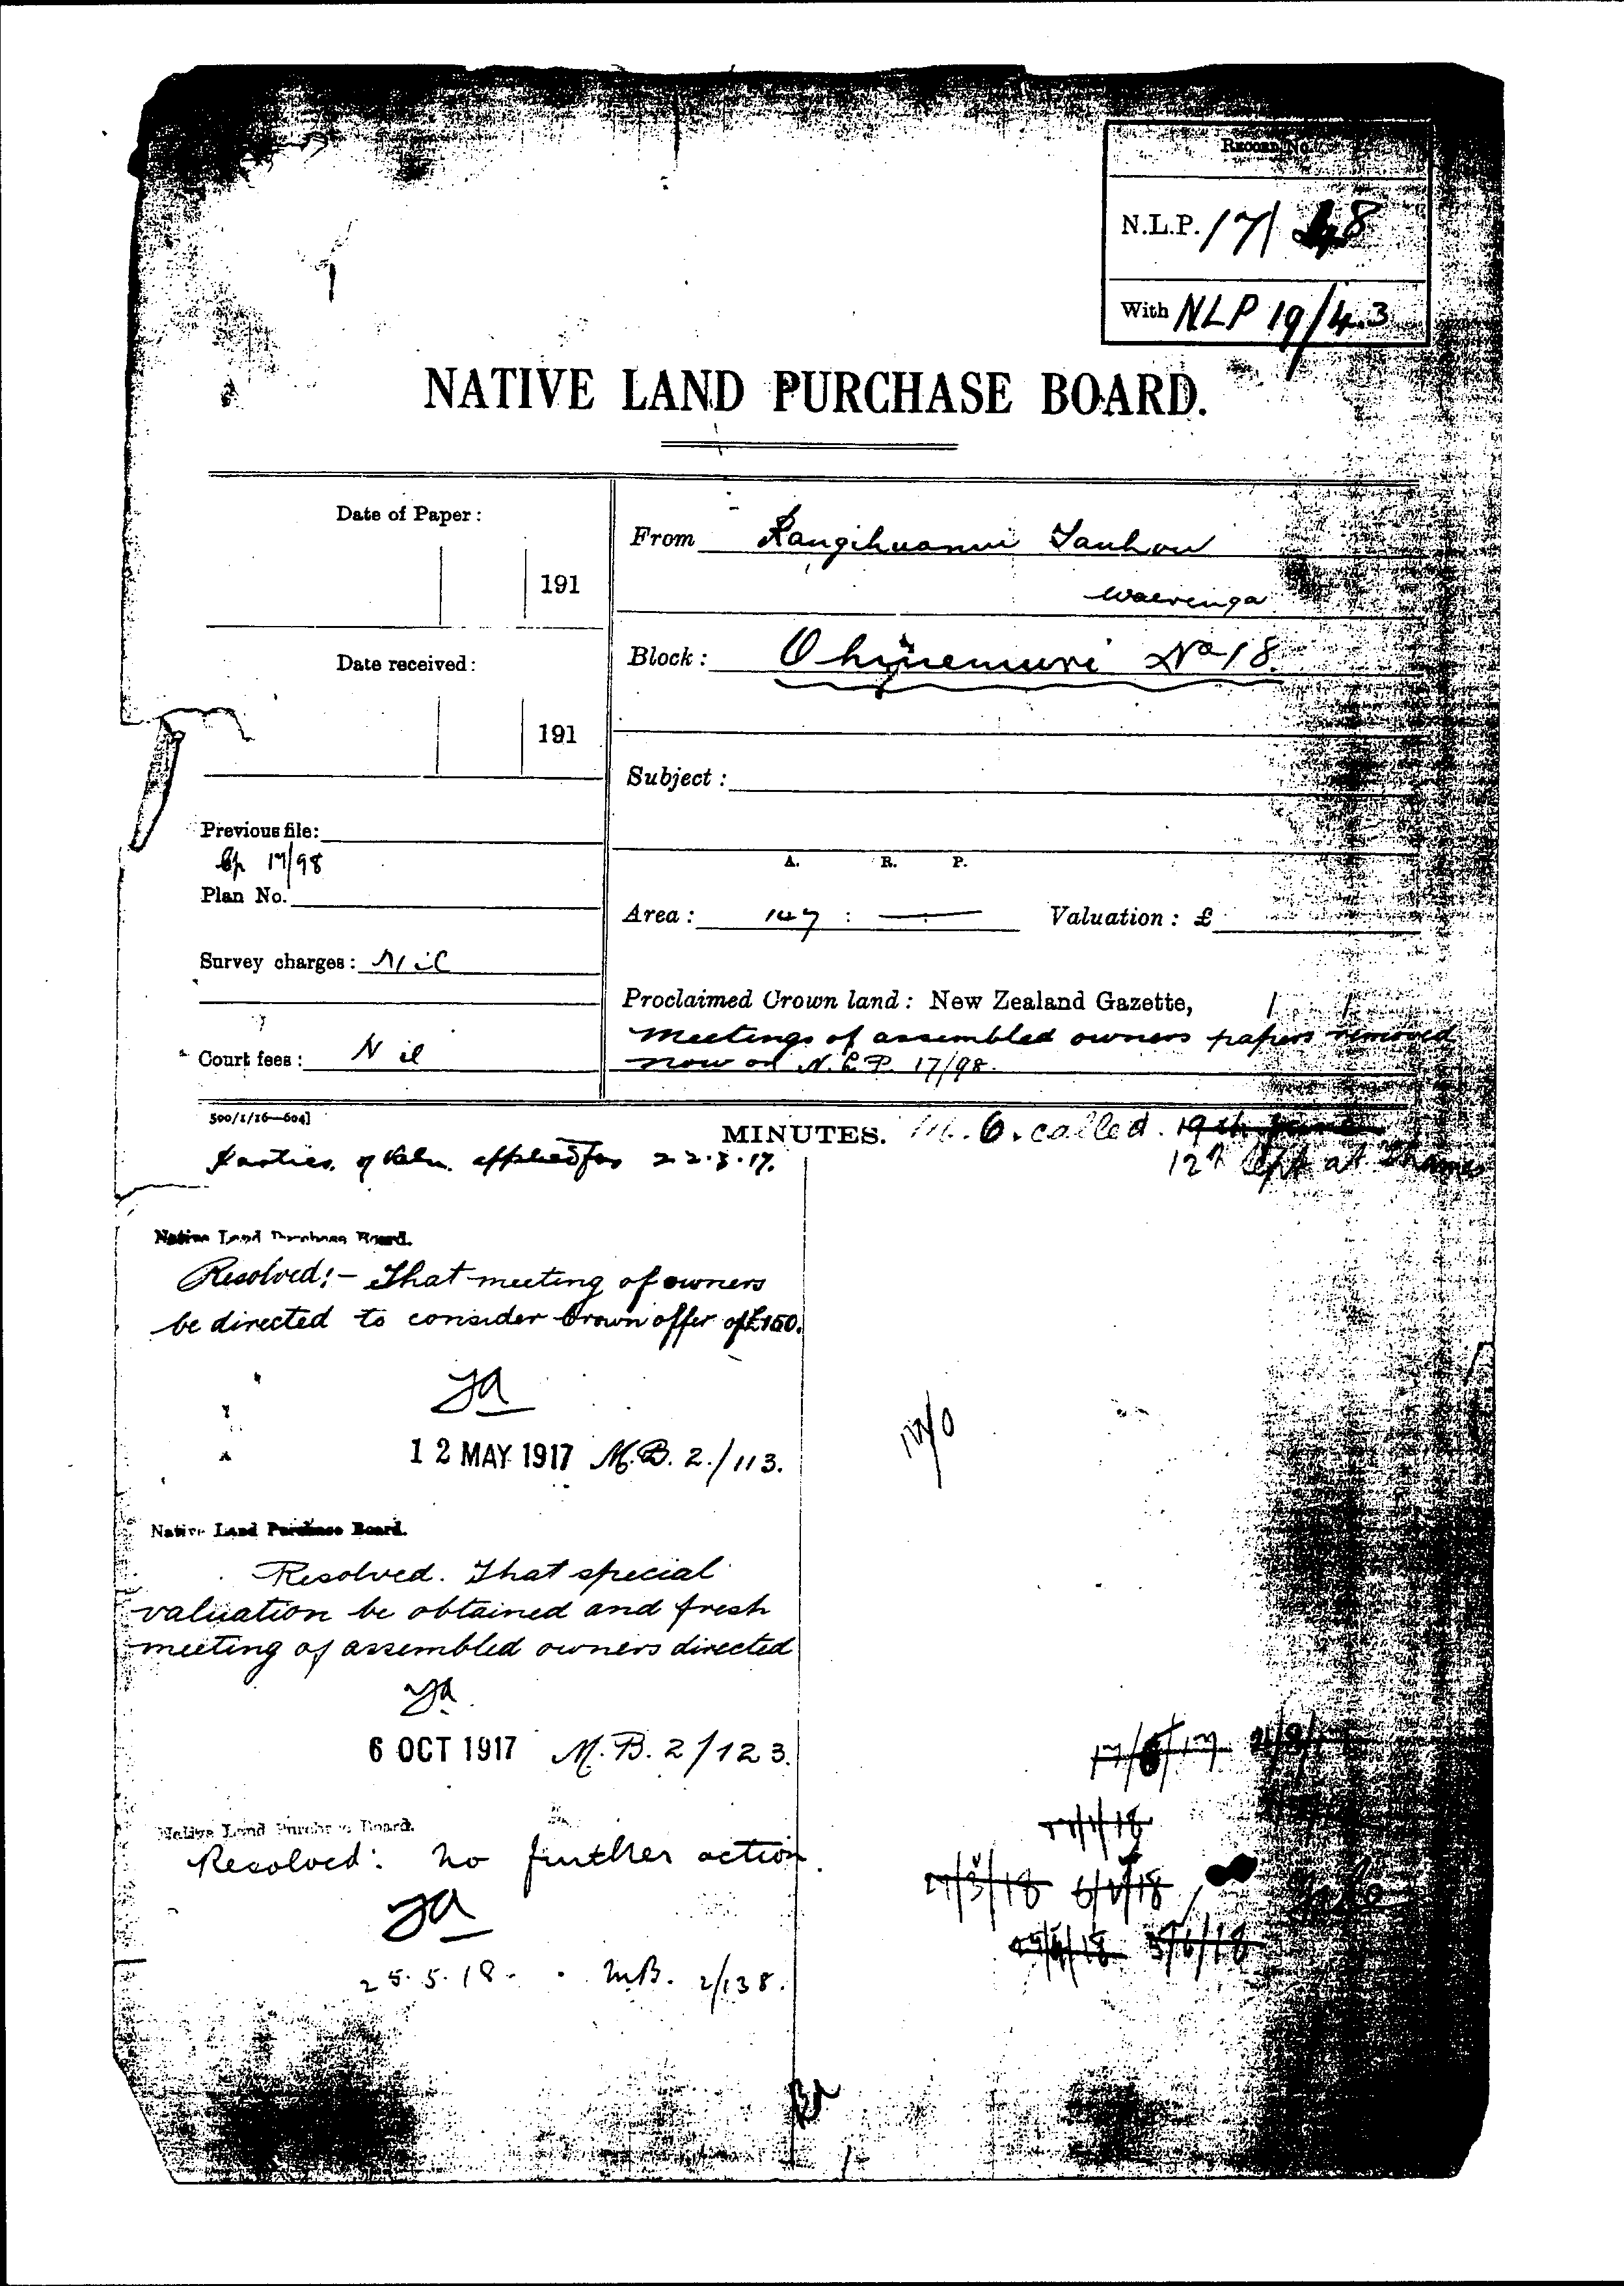 RECORD No.
N.L.P. 17/ 48
With NLP 19/43
NATIVE LAND PURCHASE BOARD.
Date of Paper:
191
From Rangihuanui Tauhou
Waerenga
Date received:
191
Block: Ohinemuri No 18.
Subject:
Previous file:
17/98
Plan No.
A. R. P.
Area: 147 : — : —
Valuation: £
Survey charges: Nil
Proclaimed Crown land: New Zealand Gazette, / /
Meetings of assembled owners papers removed
now on N.L.P. 17/98.
Court fees: Nil
500/1/16—604]
MINUTES. M.O. called. 19th June
12th Sept at Thames
of Valn. applied for 22.3.17.
Native Land Purchase Board.
Resolved:- That meeting of owners
be directed to consider Crown offer of £150.
12 MAY 1917 M.B. 2./113.
Native Land Purchase Board.
Resolved. That special
valuation be obtained and fresh
meeting of assembled owners directed
6 OCT 1917 M.B. 2/123.
17/8/17
Native Land Purchase Board.
Resolved: no further action.
/3/18
/18
25.5.18. M.B. 2/138.